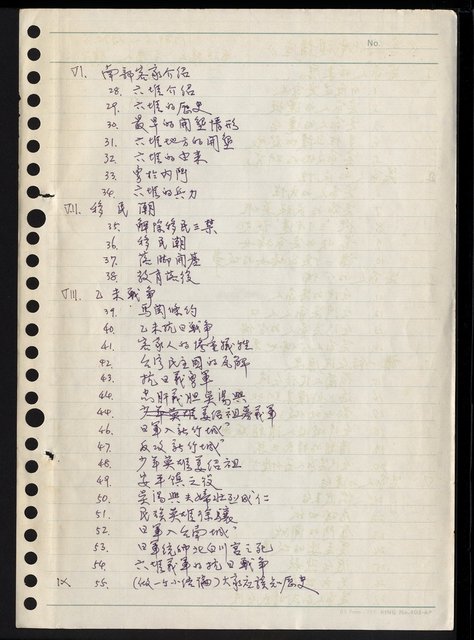 No.
VI. 南部客家介紹
28. 六堆介紹
29. 六堆的歷史
30. 最早的開墾情形
31. 六堆地方的開墾
32. 六堆的由來
33. 勇於內鬥
34. 六堆的兵力
VII. 移民潮
35. 解除移民三禁
36. 移民潮
37. 落腳開基
38. 教育落後
VIII. 乙未戰爭
39. 馬關條約
40. 乙未抗日戰爭
41. 客家人的慘重犧牲
42. 台湾民主國的瓦解
43. 抗日義勇軍
44. 忠肝義胆吳湯興
44. 少年英雄姜紹祖募義軍
46. 日軍入新竹城
47. 反攻新竹城
48. 少年英雄姜紹祖
49. 安平鎮之役
50. 吳湯興夫婦壯烈成仁
51. 民族英雄徐驤
52. 日軍入台南城
53. 日軍統帥北白川宮之死
54. 六堆義軍的抗日戰爭
IX 55. (做一个小結論)大家应該知歷史